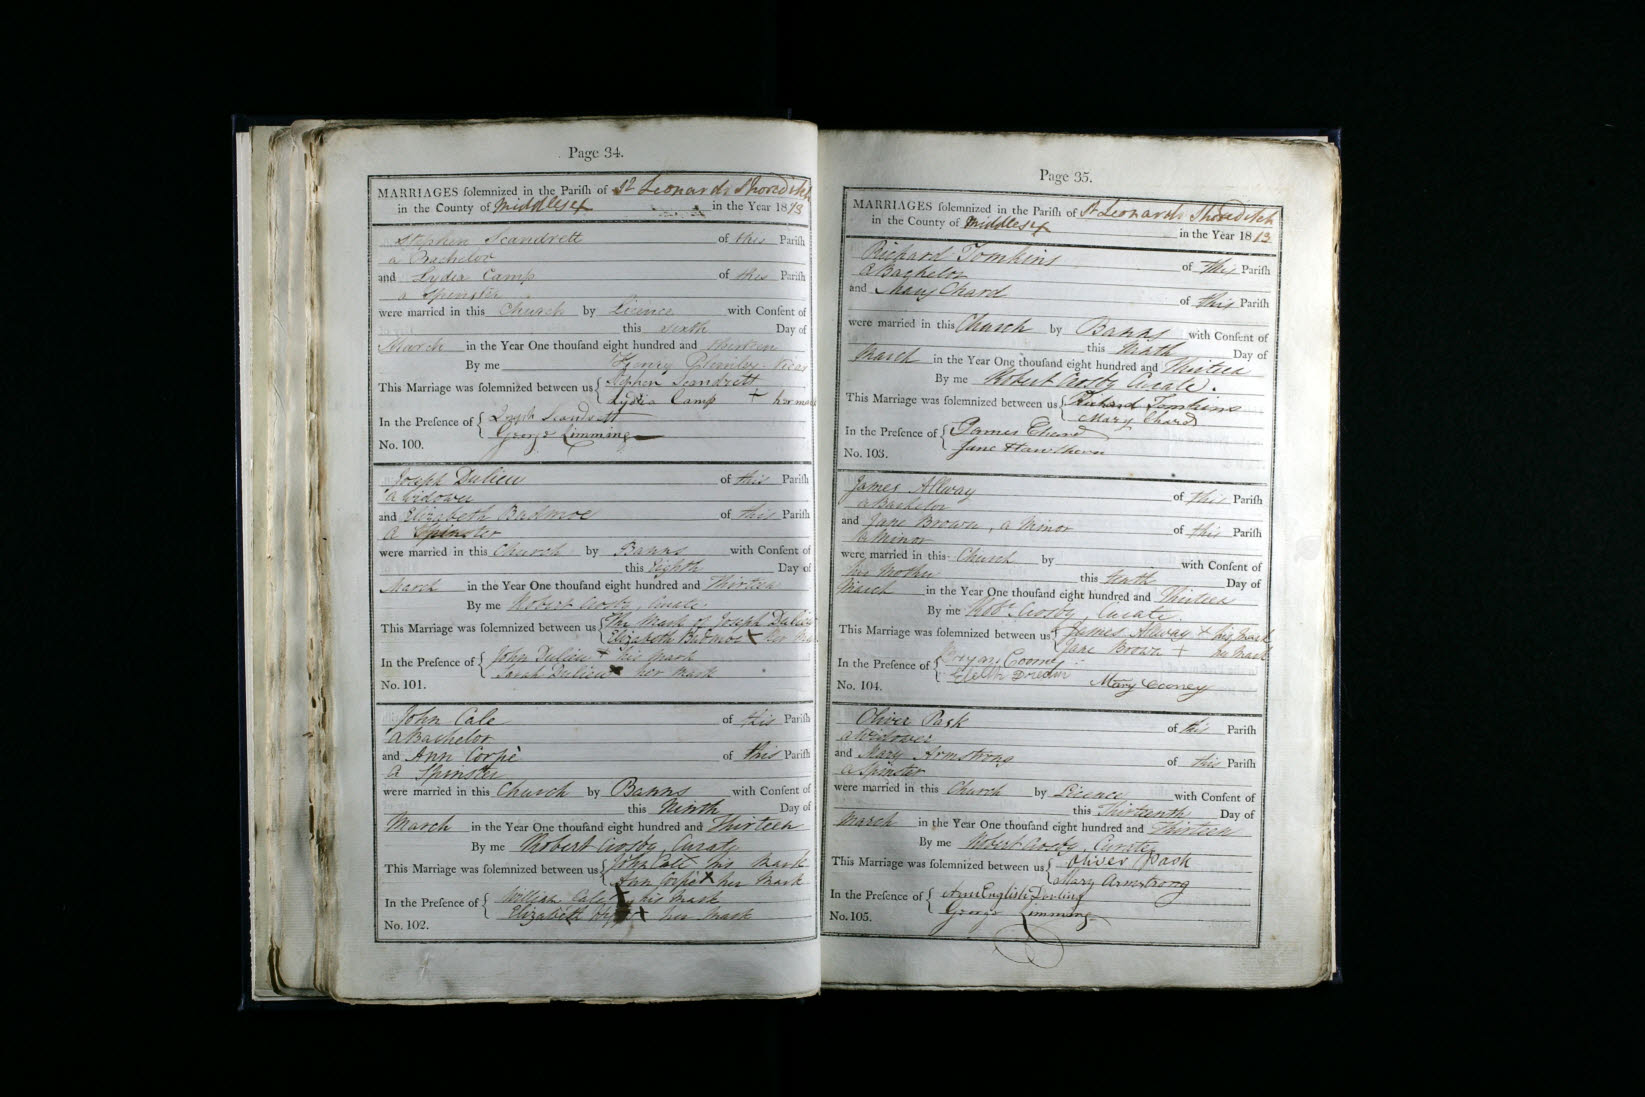 Page 34.
MARRIAGES solemnized in the Parish of St Leonards Shoreditch
in the County of Middlesex in the Year 1813
Stephen Scandrett of this Parish
a Bachelor
and Lydia Camp of this Parish
a Spinster
were married in this Church by Licence with Consent of
this sixth Day of
March in the Year One thousand eight hundred and thirteen
By me Henry Plimley Vicar
This Marriage was solemnized between us Stephen Scandrett
Lydia Camp + her mark
In the Presence of Scandrett
George Limming
No. 100.
Joseph Dulieu of this Parish
a Widower
and Elizabeth Badmoe of this Parish
a Spinster
were married in this Church by Banns with Consent of
this Eighth Day of
March in the Year One thousand eight hundred and Thirteen
By me Robert Crosby, Curate.
This Marriage was solemnized between us The Mark of Joseph Dulieu
Elizabeth Badmoe X her
In the Presence of John Dulieu + his Mark
Sarah Dulieu X her Mark
No. 101.
John Cale of this Parish
a Bachelor
and Ann Corpe of this Parish
a Spinster
were married in this Church by Banns with Consent of
this Ninth Day of
March in the Year One thousand eight hundred and Thirteen
By me Robert Crosby, Curate
This Marriage was solemnized between us John his Mark
Ann Corpe X her Mark
In the Presence of William Cale + his Mark
Elizabeth + her Mark
No. 102.
Page 35.
MARRIAGES solemnized in the Parish of St Leonards Shoreditch
in the County of Middlesex in the Year 1813
Richard Tomkins of this Parish
a Bachelor
and Mary Chard of this Parish
were married in this Church by Banns with Consent of
this Day of
March in the Year One thousand eight hundred and Thirteen
By me Robert Crosby Curate.
This Marriage was solemnized between us Richard Tomkins
Mary Chard
In the Presence of James Chard
Jane Hawthorn
No. 103.
James Allway of this Parish
a Bachelor
and Jane Brown, a Minor of this Parish
a Minor
were married in this Church by with Consent of
her Mother this tenth Day of
March in the Year One thousand eight hundred and Thirteen
By me Robt Crosby, Curate.
This Marriage was solemnized between us James Allway + his Mark
Jane Brown + her Mark
In the Presence of Bryan Cooney
Mary Cooney
No. 104.
Oliver Pask of this Parish
a Widower
and Mary Armstrong of this Parish
a Spinster
were married in this Church by Licence with Consent of
this Thirteenth Day of
March in the Year One thousand eight hundred and Thirteen
By me Robert Crosby, Curate
This Marriage was solemnized between us Oliver Pask
Mary Armstrong
In the Presence of Ann English Darling
George Limming
No. 105.